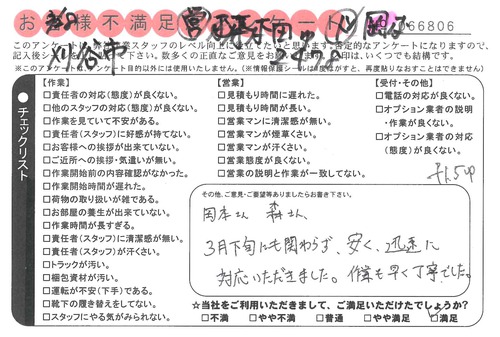 お客様不満足度アンケート
66806
刈谷市
このアンケートは、弊社作業スタッフのレベル向上に役立てたいと思います。否定的なアンケートになりますので、
記入後シールを
下さい。数多くの正直なご意見をお
印は、いくつでも結構です。
(※このアンケートは、アンケート目的以外には使用いたしません。)(※情報保護シールは
ますと、再度貼りなおすことはできません)
●チェックリスト
【作業】
□責任者の対応(態度)が良くない。
□他のスタッフの対応(態度)が良くない。
□作業を見ていて不安がある。
□責任者(スタッフ)に好感が持てない。
□お客様への挨拶が出来ていない。
□ご近所への挨拶・気遣いが無い。
□作業開始前の内容確認がなかった。
□作業開始時間が遅れた。
□荷物の取り扱いが雑である。
□お部屋の養生が出来ていない。
□作業時間が長すぎる。
□責任者(スタッフ)に清潔感が無い。
□責任者(スタッフ)が汗くさい。
□トラックが汚い。
□梱包資材が汚い。
□運転が不安(下手)である。
□靴下の履き替えをしてない。
□スタッフにやる気がみられない。
【営業】
□見積もり時間に遅れた。
□見積もり時間が長い。
□営業マンに清潔感が無い。
□営業マンが煙草くさい。
□営業マンが汗くさい。
□営業態度が良くない。
□営業の説明と作業が一致してない。
【受付・その他】
□電話の対応が良くない。
□オプション業者の説明
・作業が良くない。
□オプション業者の対応
(態度)が良くない。
その他、ご意見・ご要望等ありましたらお書き下さい。
岡本さん 森さん
3月下旬にも関わらず、安く、迅速に
対応いただきました。作業も早く丁寧でした。
☆当社をご利用いただきまして、ご満足いただけたでしょうか?
□不満 □やや不満 □普通 □やや満足 □満足